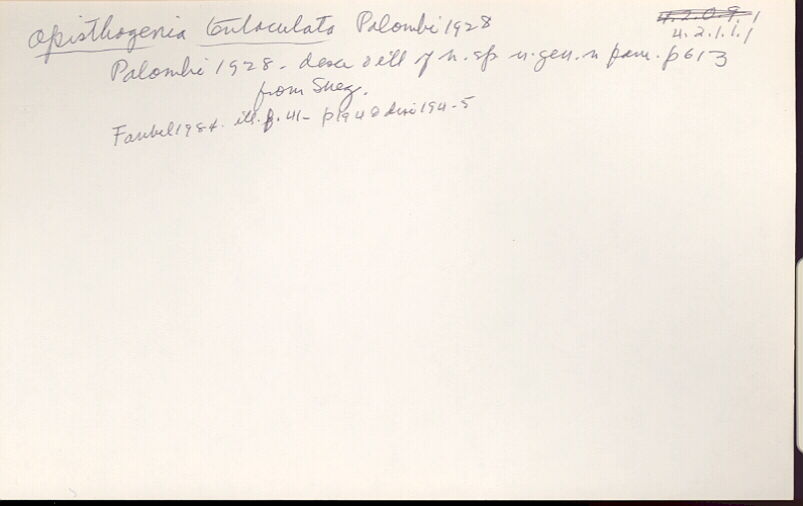 Opisthogenia tentaculata Palombi 1928
4.2.1.1.1
Palombi 1928 - descr & ill of n. sp n. gen. n fam. p613
from Suez.
Faubel 1984. ill. f. 41 - p194 & descr 194-5